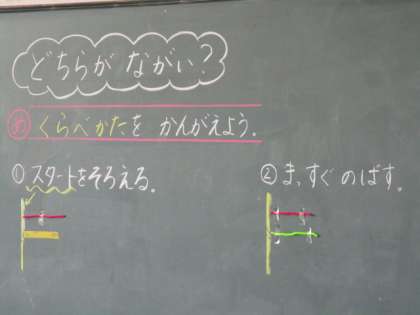 どちらが ながい?
め くらべかたを かんがえよう。
① スタートをそろえる。
② まっすぐ のばす。